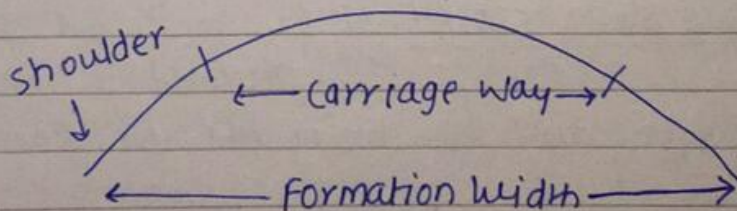 shoulder
carriage way
Formation width